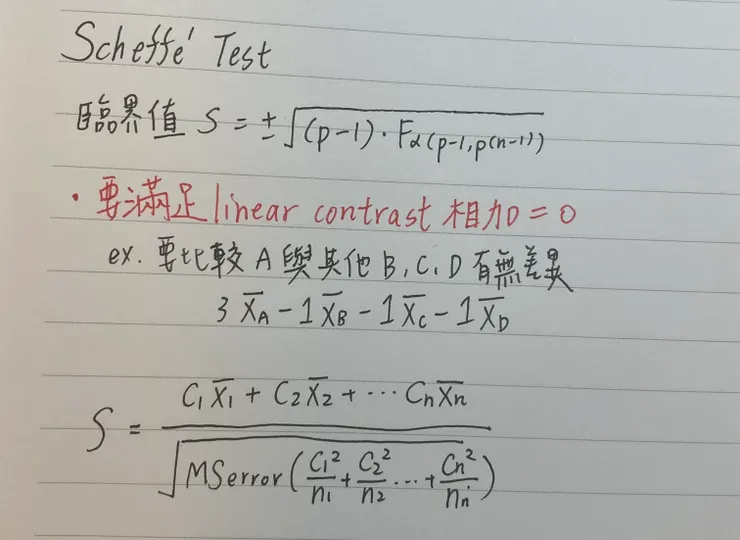 Scheffé Test
臨界值 S = ±√(p-1)·Fα(p-1, p(n-1))
・要滿足 linear contrast 相加 = 0
ex. 要比較 A 與其他 B, C, D 有無差異
3X̄A - 1X̄B - 1X̄C - 1X̄D
S = (C₁X̄₁ + C₂X̄₂ + ⋯ CnX̄n) / √MSerror(C₁²/n₁ + C₂²/n₂ ⋯ + Cn²/nn)